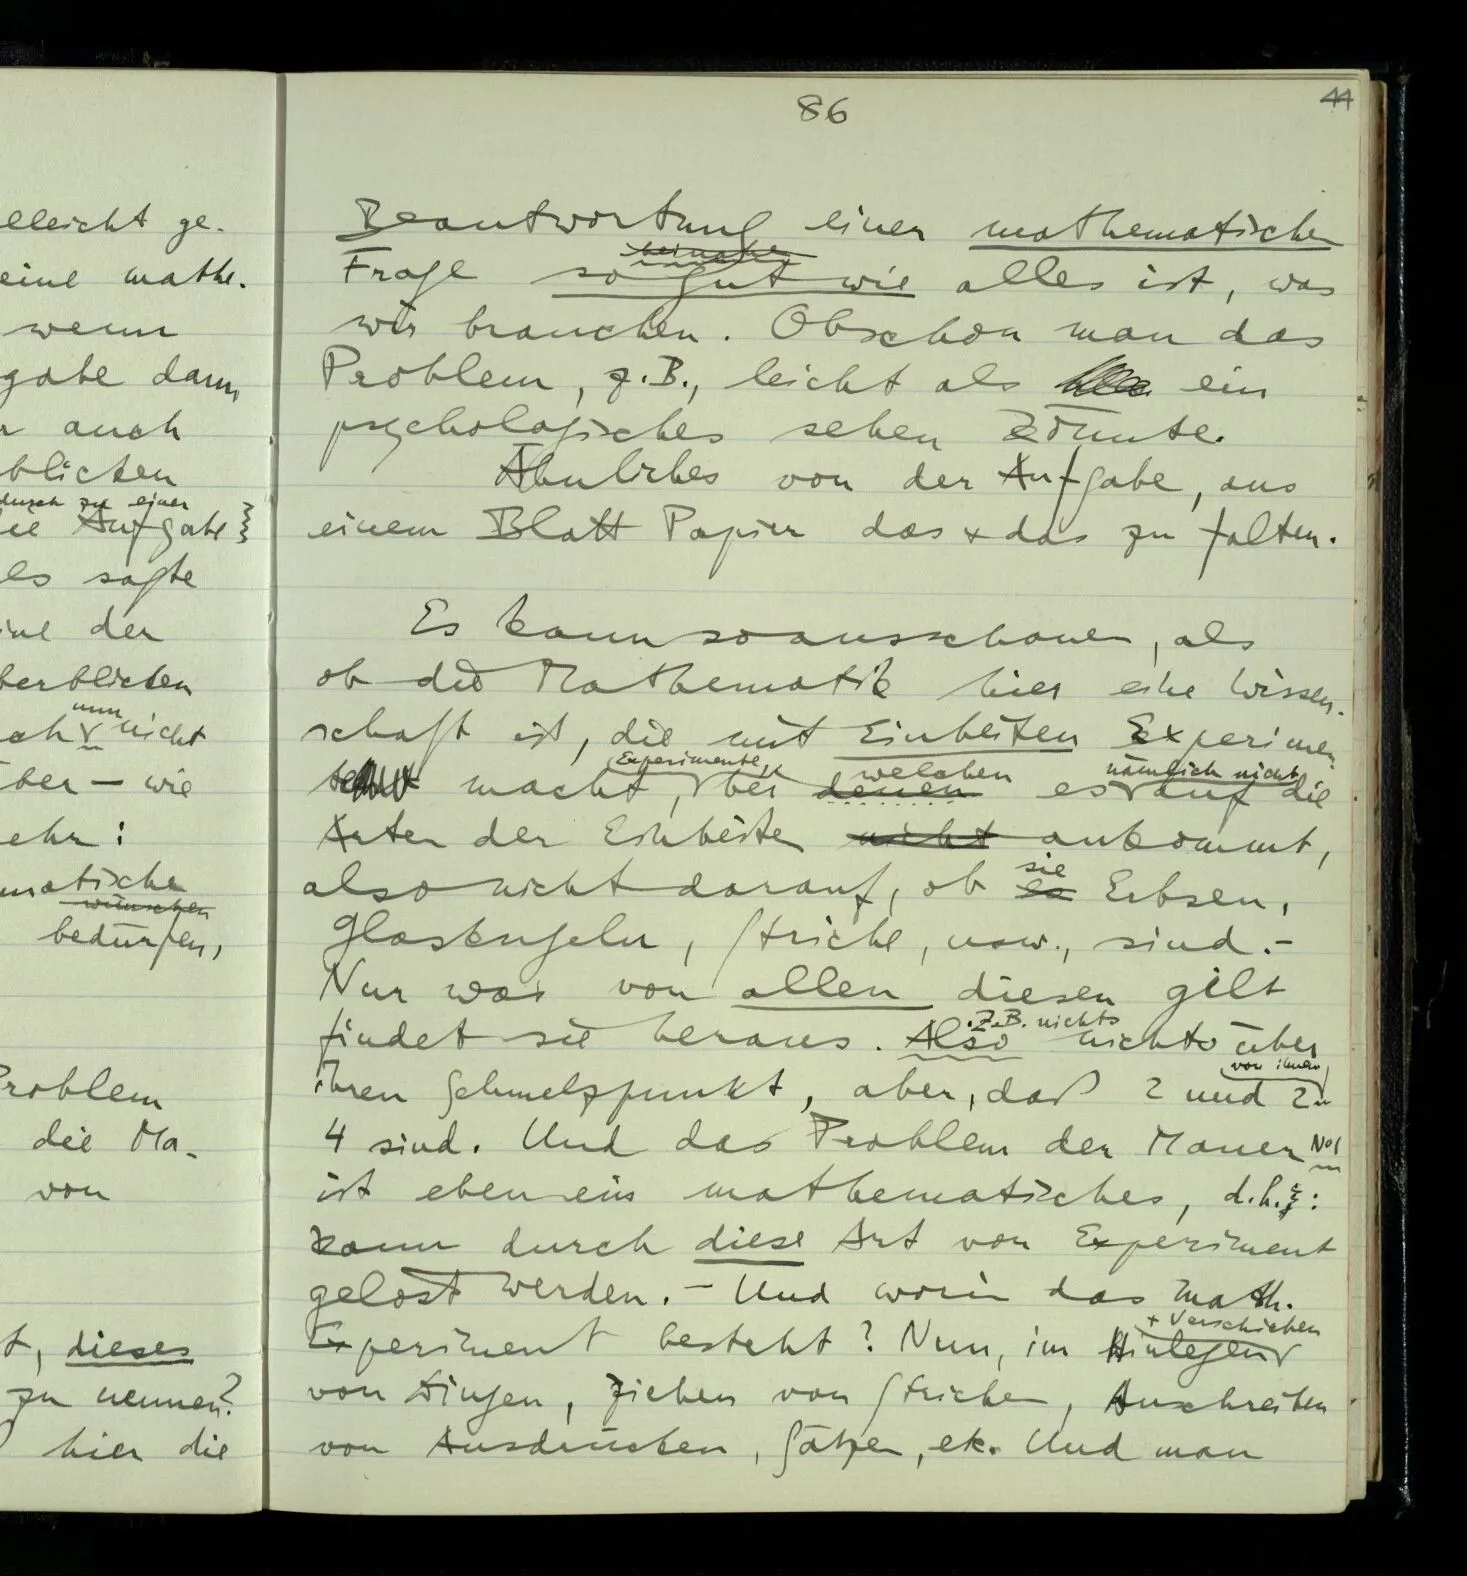 86
44
elleicht ge-
eine mathe-
wenn
gabe dann,
auch
blicken
durch zu einer
Aufgabe
es sagte
ine der
berblicken
nun
nicht
ber – wie
ehr:
matische
wünschen
bedürfen,
Problem
die Ma-
von
t, dieses
zu nennen?
hier die
Beantwortung einer mathematischen
beinahe
Frage so gut wie alles ist, was
wir brauchen. Obschon man das
Problem, z.B., leicht als ein
psychologisches sehen könnte.
Ähnliches von der Aufgabe, aus
einem Blatt Papier das + das zu falten.
Es kann so ausschauen, als
ob die Mathematik hier eine Wissen-
schaft ist, die mit Einheiten Experimen-
Experimente, welchen nämlich nicht
te macht, bei denen es auf die
Arten der Einheiten nicht ankommt,
sie
also nicht darauf, ob es Erbsen,
Glaskugeln, Striche, usw., sind.–
Nur was von allen diesen gilt
findet sie heraus. Also nichts über
Z.B. nichts
von ihnen
ihren Schmelzpunkt, aber, daß 2 und 2
4 sind. Und das Problem der Mauer No1
ist eben ein mathematisches, d.h.:
kann durch diese Art von Experiment
gelöst werden. – Und worin das math.
+ Verschieben
Experiment besteht? Nun, im Hinlegen
von Dingen, ziehen von Strichen, Anschreiben
von Ausdrücken, Sätzen, etc. Und man